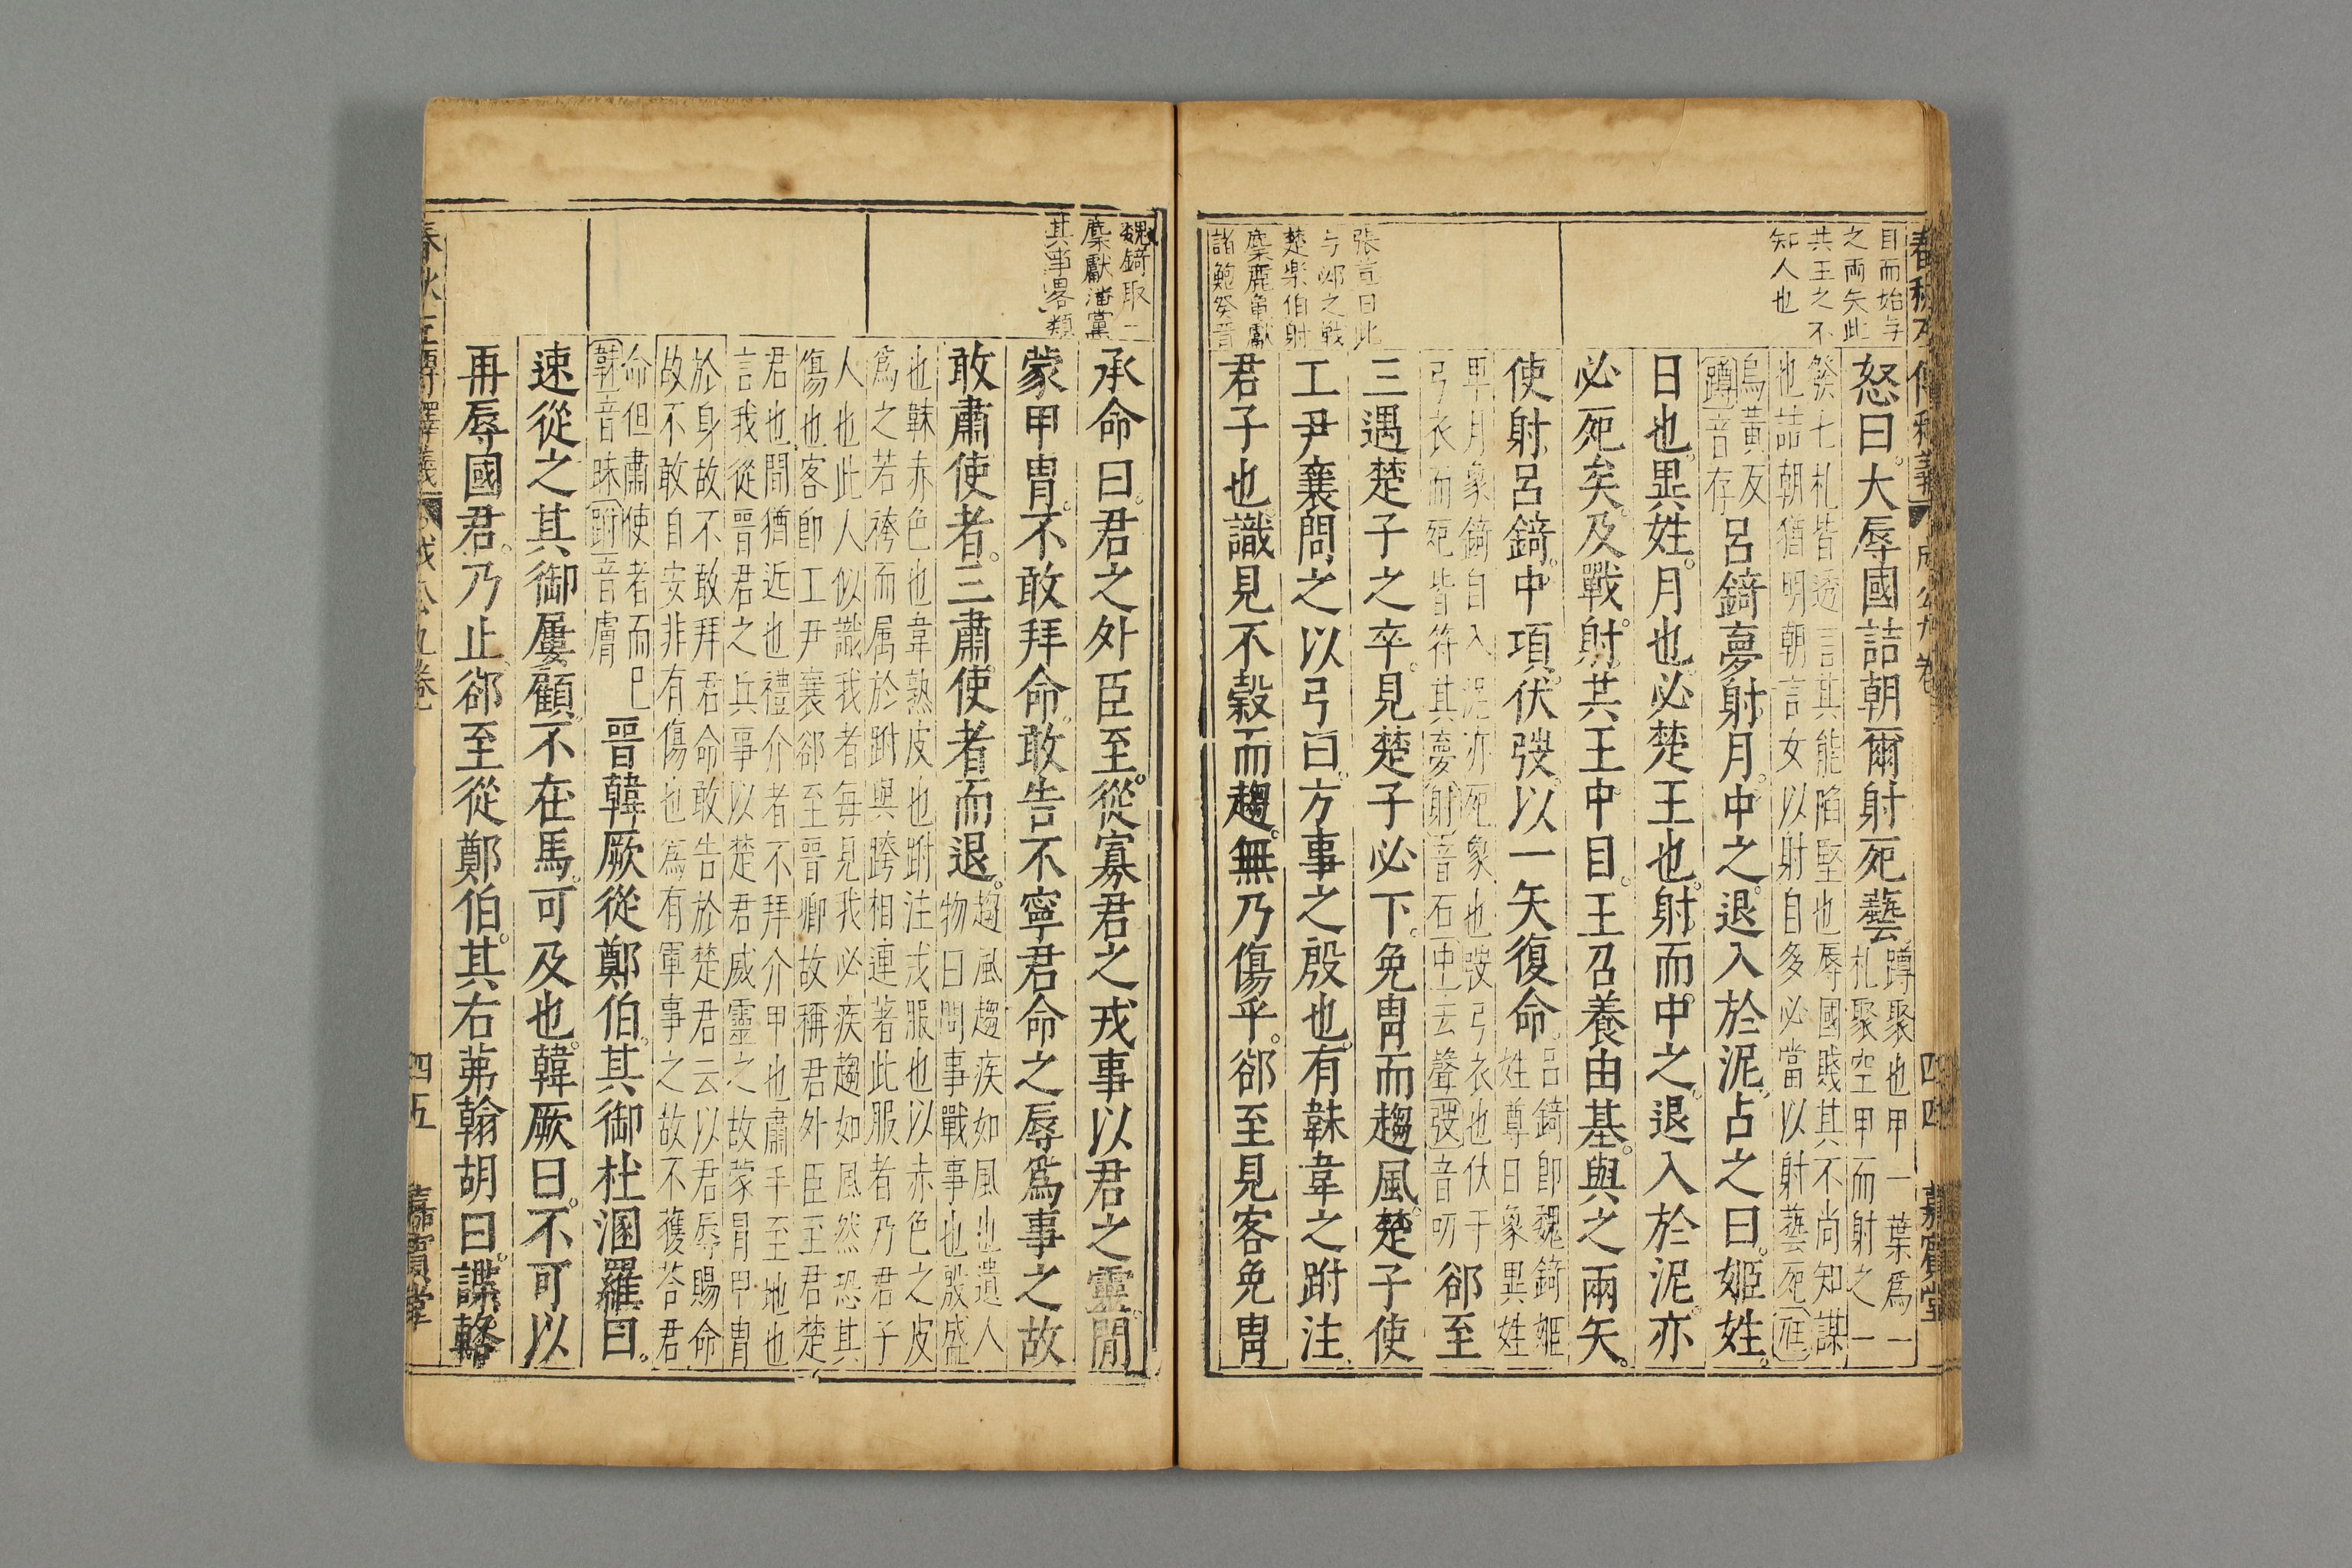 目而始与
之兩矢此
共王之不
知人也
張豈曰此
与邲之戰
楚樂伯射
麋麗龜獻
諸鮑癸音
怒曰。大辱國詰朝爾射死藝
蹲聚也甲一葉爲一
札聚空甲而射之一
發七札皆透言其能陷堅也辱國賤其不尚知謀
也詰朝猶明朝言女以射自多必當以射藝死
烏黃反
蹲音存
呂錡夢射月。中之。退入於泥。占之曰。姬姓。
日也。異姓。月也。必楚王也。射。而中之。退入於泥。亦
必死矣。及戰。射共王中目。王召養由基。與之兩矢。
使射呂錡。中項。伏弢。以一矢復命。
呂錡卽魏錡姬
姓尊曰象異姓
卑月象錡自入泥亦死象也弢弓衣也伏于
弓衣而死皆符其夢射音石中去聲弢音叨
郤至
三遇楚子之卒。見楚子必下。免胄而趨風。楚子使
工尹襄問之以弓曰。方事之殷也。有韎韋之跗注
君子也識見不穀而趨。無乃傷乎。郤至見客免胄
春秋左傳釋義
成公九卷
四四
嘉賓堂
魏錡取一
麋獻潘黨
其事畧類
承命曰。君之外臣至。從寡君之戎事以君之靈。閒
蒙甲冑。不敢拜命。敢告不寧君命之辱爲事之故
敢肅使者。三肅使者而退。
趨風趨疾如風也遺人
物曰問事戰事也殷盛
也韎赤色也韋熟皮也跗注戎服也以赤色之皮
爲之若袴而属於跗與跨相連著此服者乃君子
人也此人似識我者每見我必疾趨如風然恐其
傷也客卽工尹襄郤至晉卿故稱君外臣至君楚
君也間猶近也禮介者不拜介甲也肅手至地也
言我從晉君之兵事以楚君威靈之故蒙冐甲冑
於身故不敢拜君命敢告於楚君云以君辱賜命
故不敢自安非有傷也爲有軍事之故不獲荅君
命但肅使者而巳
韎音昧跗音膚
晉韓厥從鄭伯。其御杜溷羅曰。
速從之其御屢顧。不在馬。可及也。韓厥曰。不可以
再辱國君。乃止。郤至從鄭伯。其右茀翰胡曰。諜輅
春秋左傳釋義
成公九卷
四五
嘉賓堂